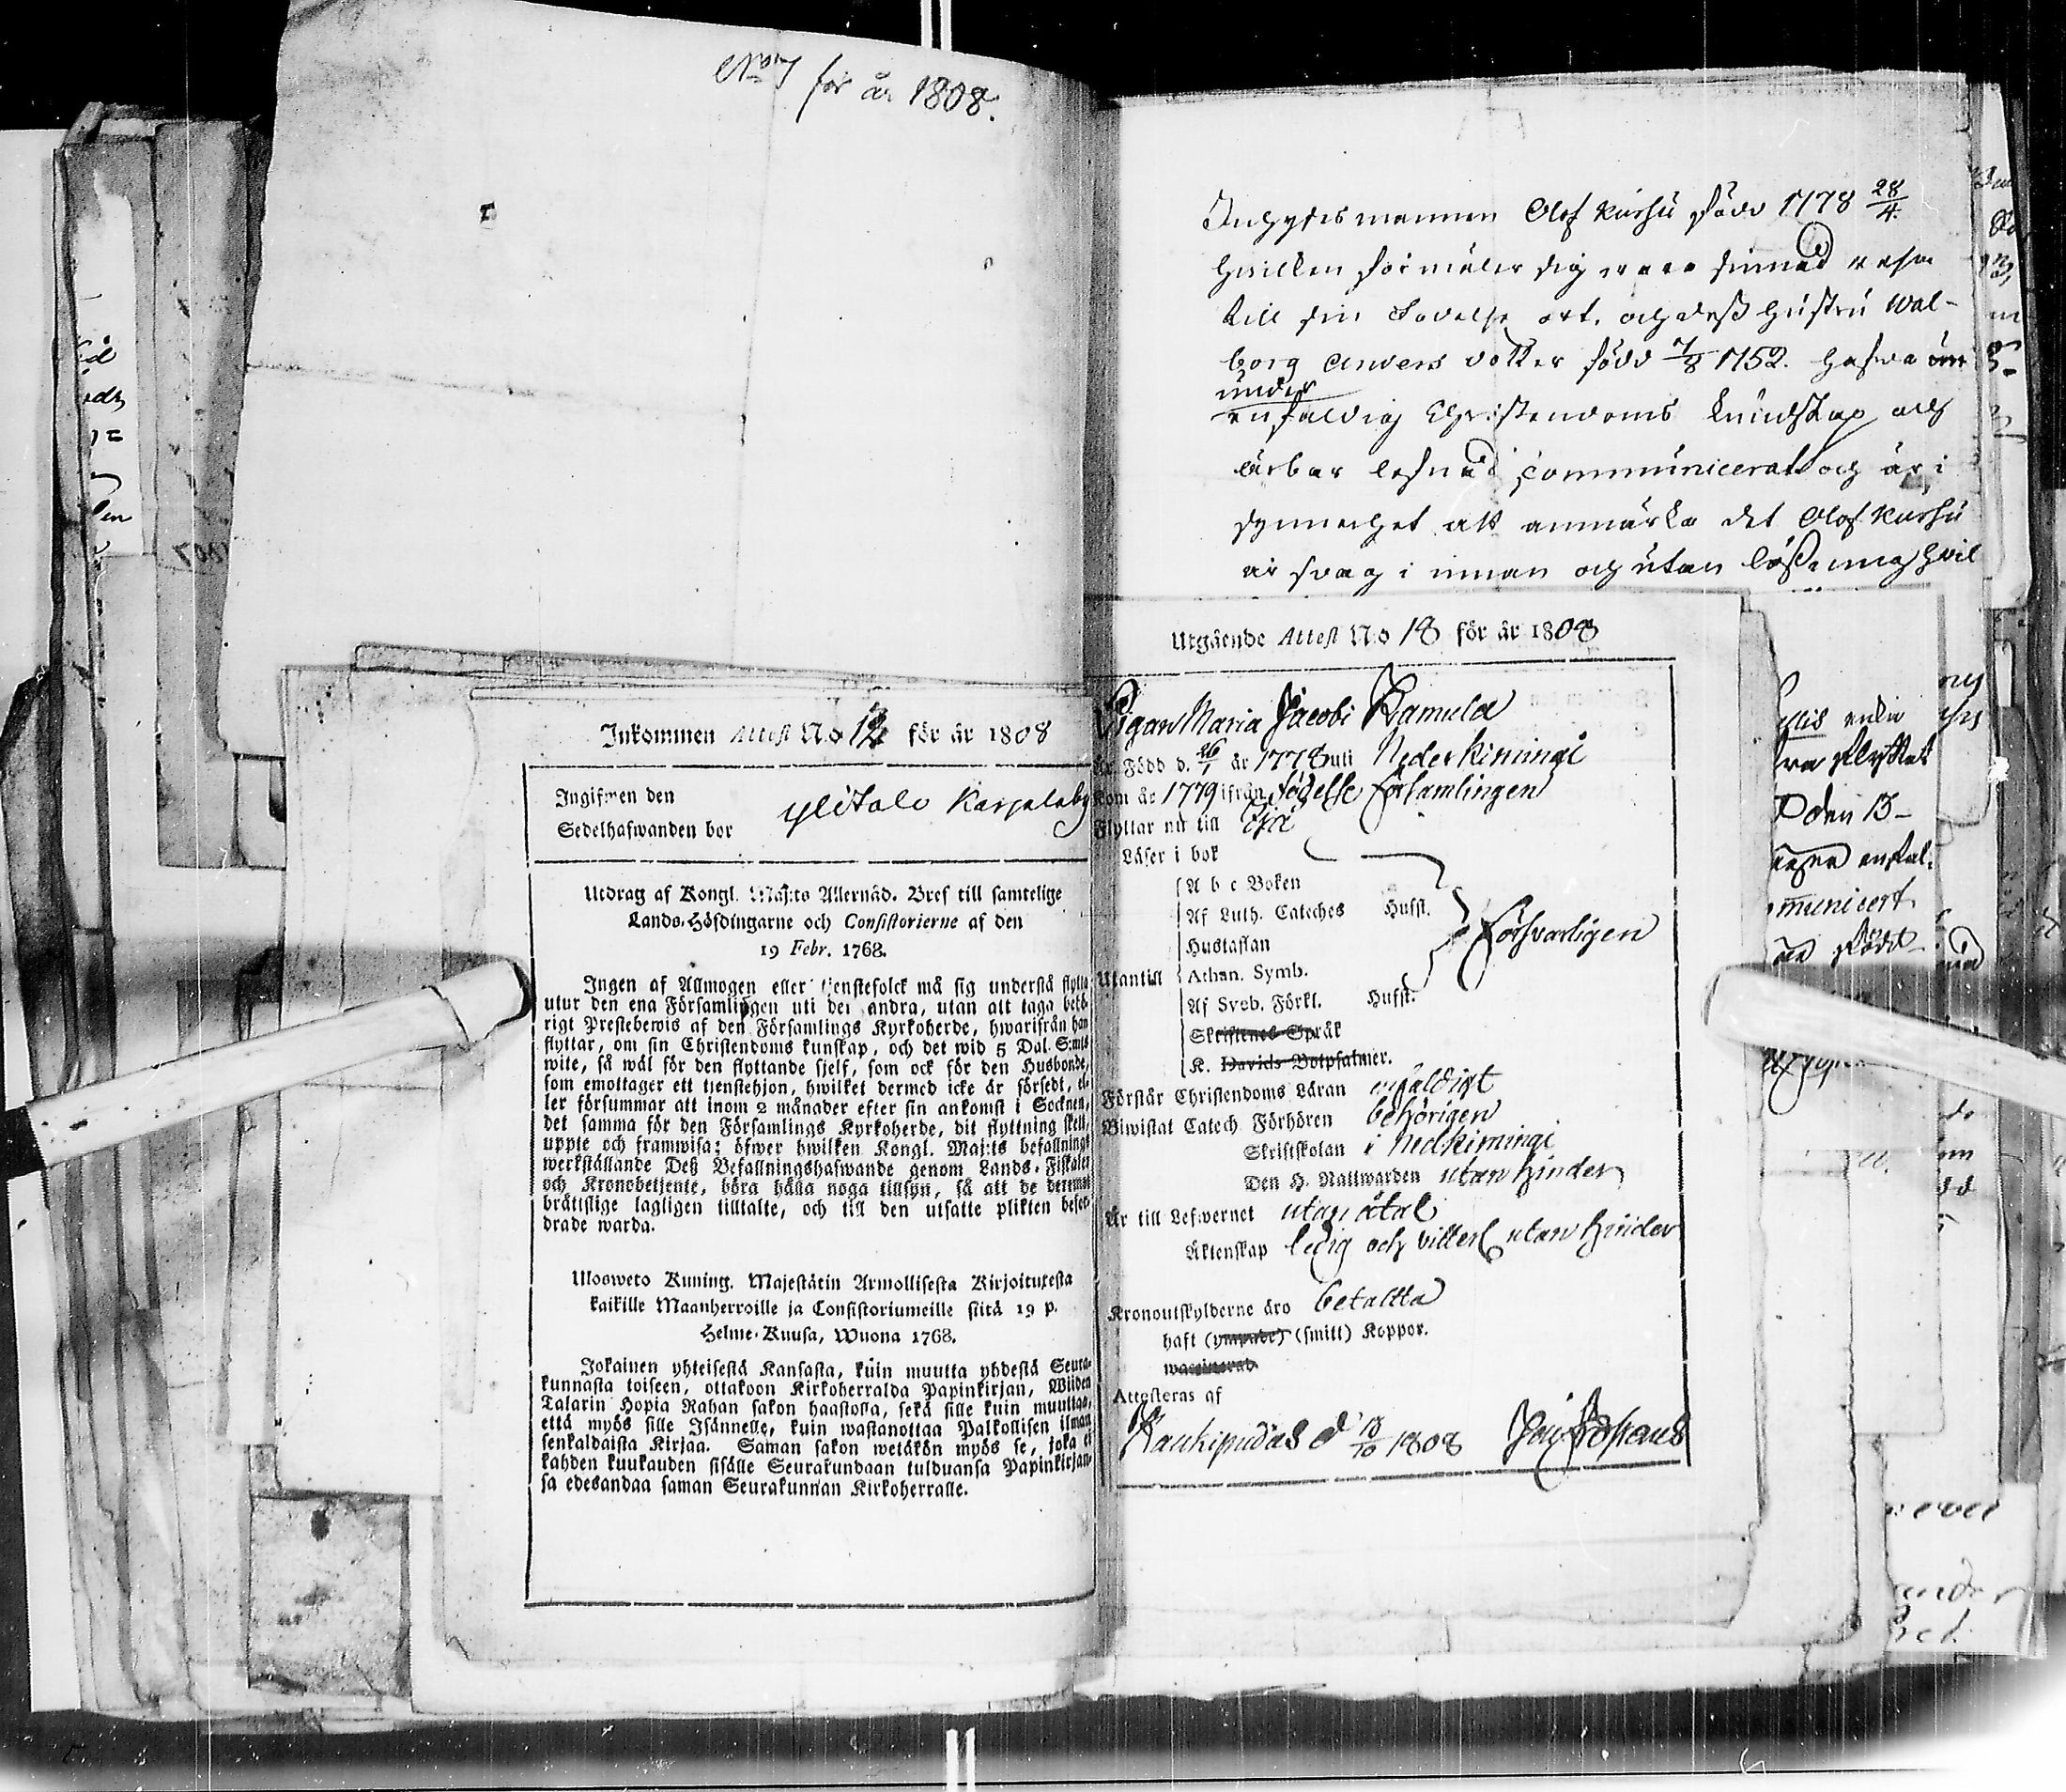 No 7 för år 1808.
Inhysesmannen Olof Karhu född 1778 28/4.
hvilken förmäler sig vara sinnad resa
till sin Födelse ort, och dess hustru Wal-
borg Anders dotter född 7/8 1752. hafva
under
enfaldig Christendoms kundskap och
ärbar lefnad communicerat och är i
synnerhet att anmärka det Olof Karhu
är svag i innan och utan läsning hvil
Inkommen Attest No 12 för år 1808
Ingifwen den
Sedelhafwanden bor Ylitalo Karjalaby
Utdrag af Kongl. Maj:ts Allernåd. Bref till samtelige
Lands-Höfdingarne och Consistorierne af den
19 Febr. 1768.
Ingen af Allmogen eller tjenstefolck må sig understå flytta
utur den ena Församlingen uti den andra, utan att taga behö-
rigt Prestebewis af den Församlings Kyrkoherde, hwarifrån han
flyttar, om sin Christendoms kunskap, och det wid 5 Dal. S:mts
wite, så wäl för den flyttande sjelf, som ock för den Husbonde,
som emottager ett tjenstehjon, hwilket dermed icke är försedt, el-
ler försummar att inom 2 månader efter sin ankomst i Socknen,
det samma för den Församlings Kyrkoherde, dit flyttning skett,
uppte och framwisa; öfwer hwilken Kongl. Maj:ts befallnings
werkställande Deß Befallningshafwande genom Lands-Fiskaler
och Kronobetjente, böra hålla noga tillsyn, så att de deremot
bråttslige lagligen tilltalte, och till den utsatte plikten befor-
drade warda.
Ulosweto Kuning. Majestätin Armollisesta Kirjoituxesta
kaikille Maanherroille ja Consistoriumeille siitä 19 p.
Helme-Kuusa, Wuona 1768.
Jokainen yhteisestä Kansasta, kuin muutta yhdestä Seura-
kunnasta toiseen, ottakoon Kirkoherralda Papinkirjan, Wiiden
Talarin Hopia Rahan sakon haastolla, sekä sille kuin muuttaa,
että myös sille Isännelle, kuin wastanottaa Palkollisen ilman
senkaldaista Kirjaa. Saman sakon wetäkön myös se, joka ei
kahden kuukauden sisälle Seurakundaan tulduansa Papinkirjan-
sa edesandaa saman Seurakunnan Kirkoherralle.
Utgående Attest No 18 för år 1808
Pigan Maria Jacobi Ramula
Är Född d. 26/1 år 1778 uti Nederkimingi
Kom år 1779 ifrån födelse församlingen
Flyttar nu till
Läser i bok
A b c Boken
Af Luth. Cateches Husst.
Hustaflan
Utantill Athan. Symb.
Af Sveb. Förkl. Husst.
Skriftenes Språk
K. Davids Botpsalmer.
försvarligen
Förstår Christendoms Läran enfaldigt
Biwistat Catech Förhören behörigen
Skriftskolan i Nedkimingi
Den H. Nattwarden utan hinder
Är till Lefwernet utan åtal
Äktenskap ledig och utan hinder
Kronoutskylderne äro betaltta
haft (ympade) (smitt) Koppor.
waccinerad
Attesteras af
Haukipudas d 18/10 1808